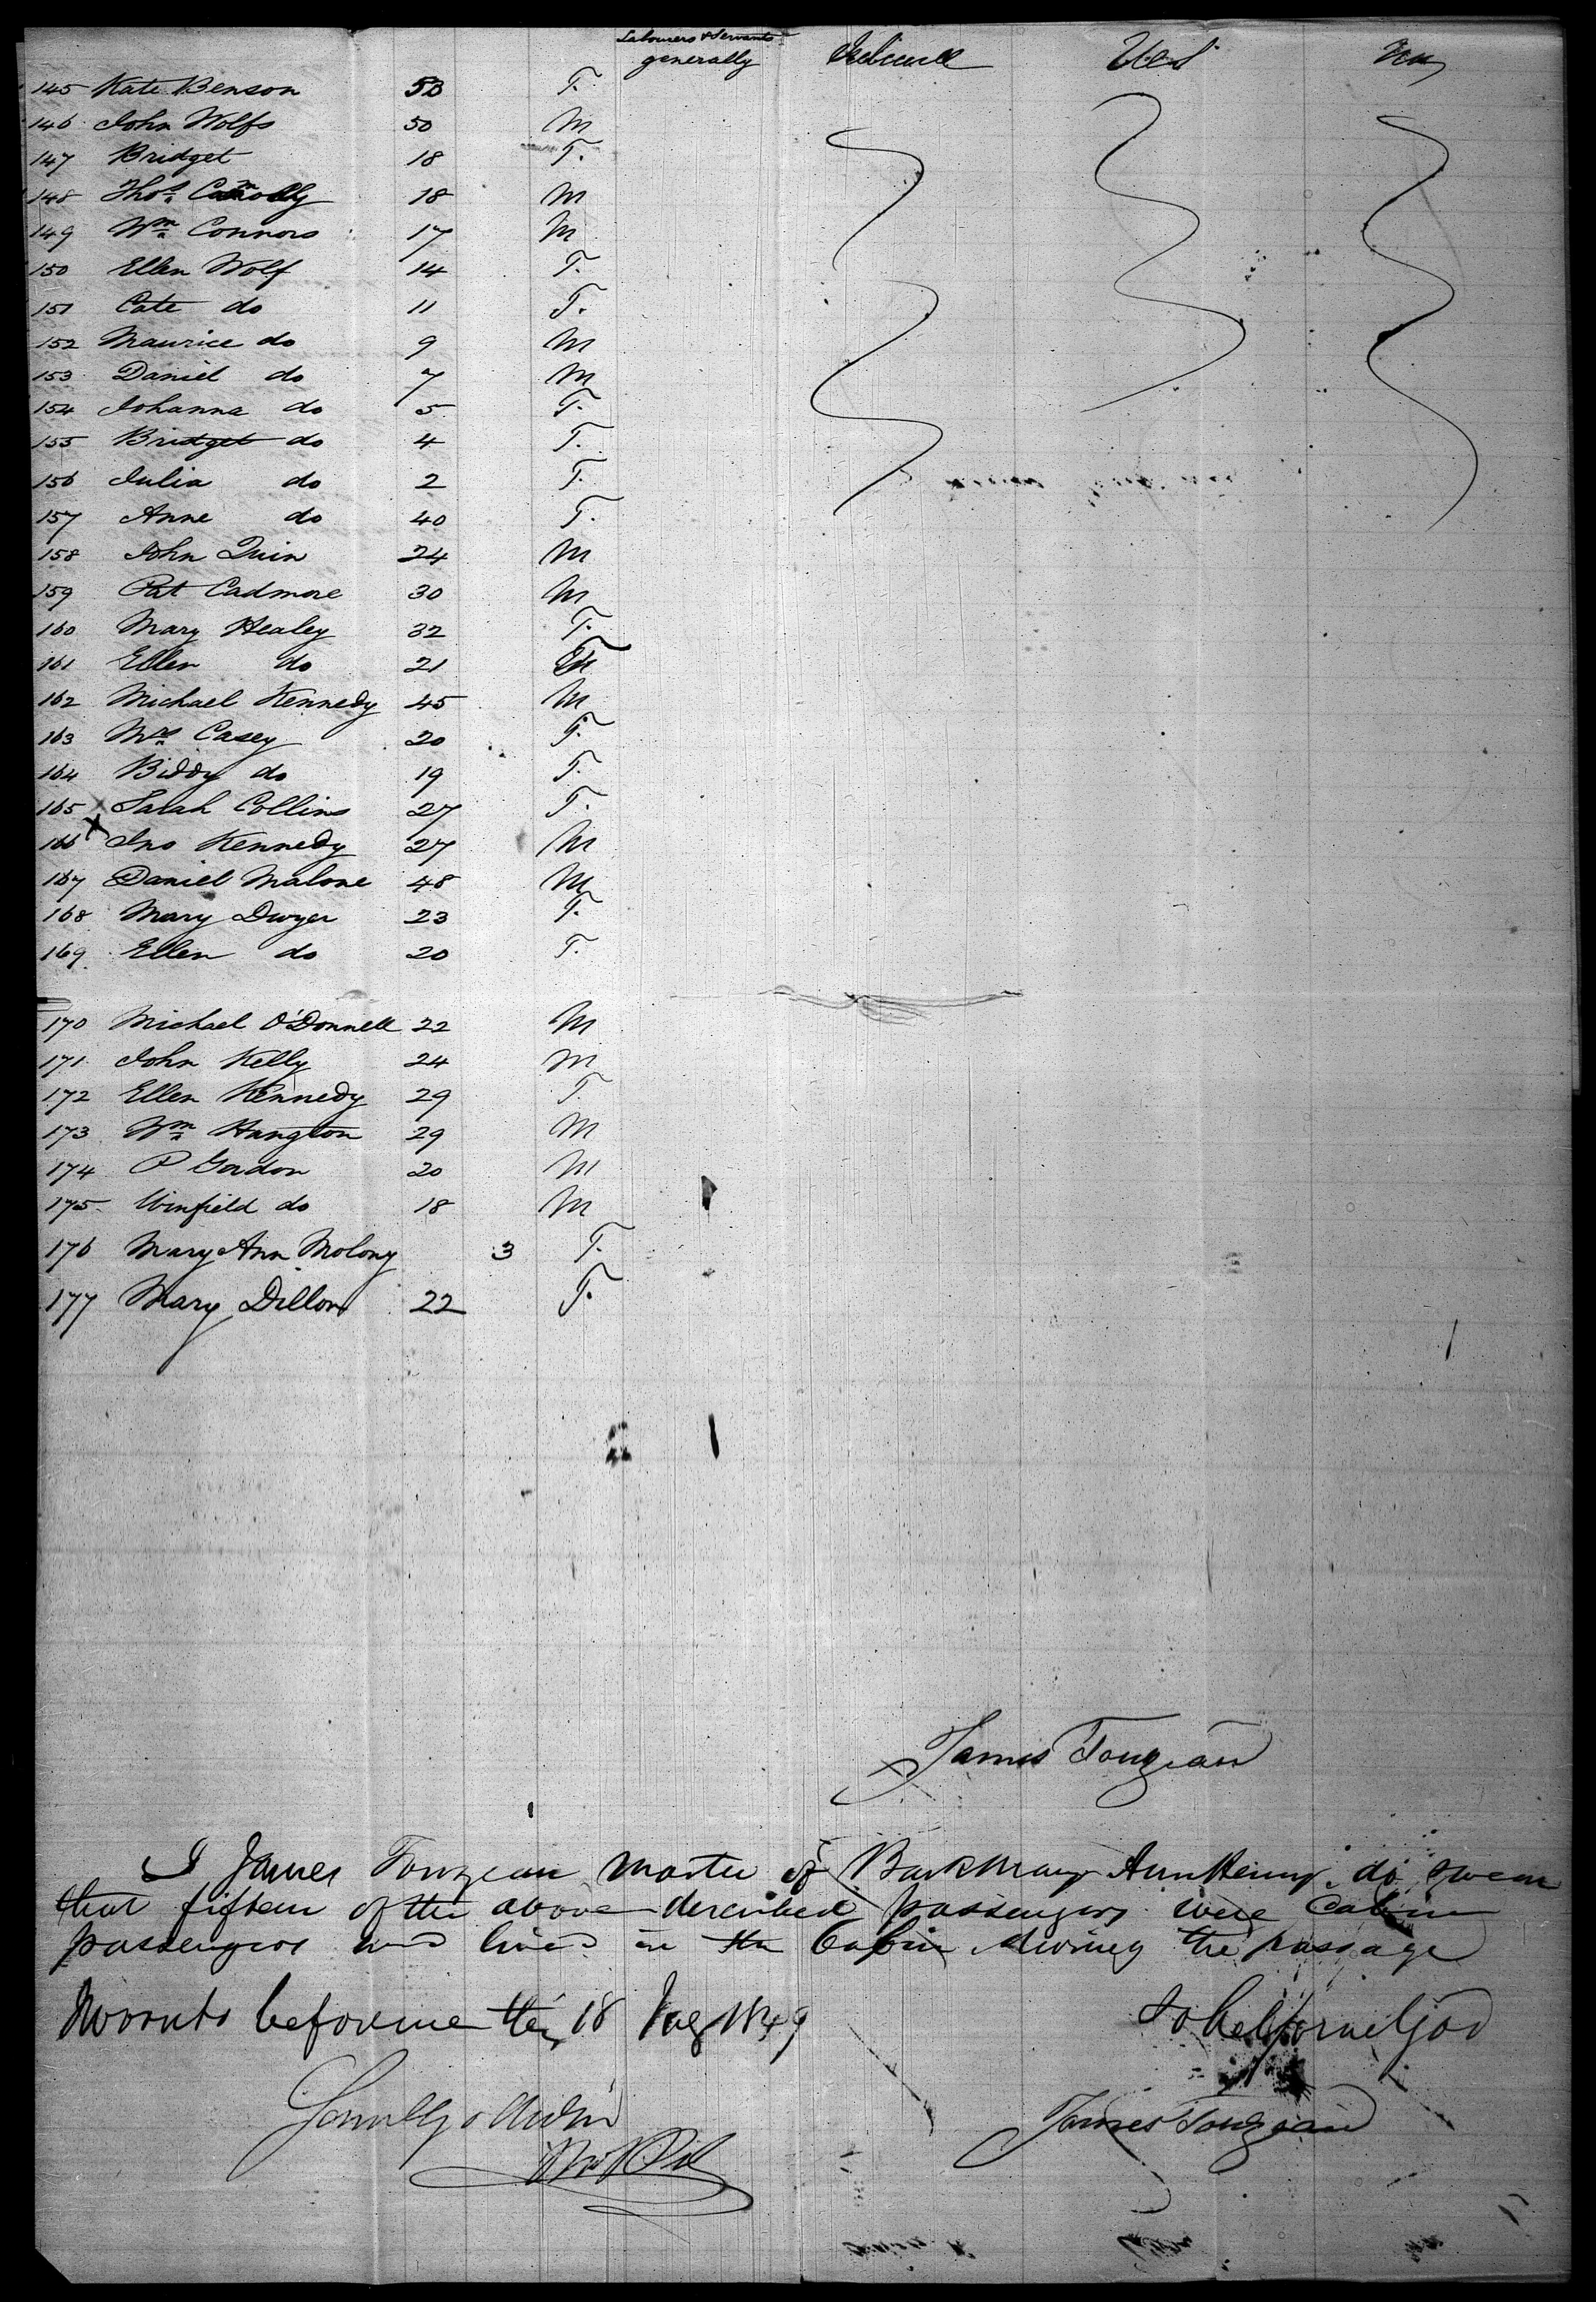 Labourers & Servants
generally
145 Kate Benson 50 F.
146 John Wolfs 50 M
147 Bridget 18 F.
148 Thos. Connolly 18 M
149 Wm. Connors 17 M
150 Ellen Wolf 14 F.
151 Cate do 11 F.
152 Maurice do 9 M
153 Daniel do 7 M
154 Johanna do 5 F.
155 Bridget do 4 F.
156 Julia do 2 F.
157 Anne do 40 F.
158 John Quin 24 M
159 Pat Cadmore 30 M
160 Mary Healey 32 F.
161 Ellen do 21 F
162 Michael Kennedy 45 M
163 Mrs Casey 20 F.
164 Biddy do 19 F.
165 Sarah Collins 27 F.
166 X Jno Kennedy 27 M
167 Daniel Malone 48 M
168 Mary Dwyer 23 F.
169 Ellen do 20 F.
170 Michael O'Donnell 22 M
171 John Kelly 24 M
172 Ellen Kennedy 29 F.
173 Wm. Hangton 29 M
174 P Gordon 20 M
175 Winfield do 18 M
176 Mary Ann Molony 3 F.
177 Mary Dillon 22 F.
James Touzeau
I James Touzeau Master of Bark Mary Ann Henry do swear
that fifteen of the above described passengers were Cabin
passengers and lived in the Cabin during the passage
Sworn to before me this 18 Aug 1849
So help me God
James Touzeau